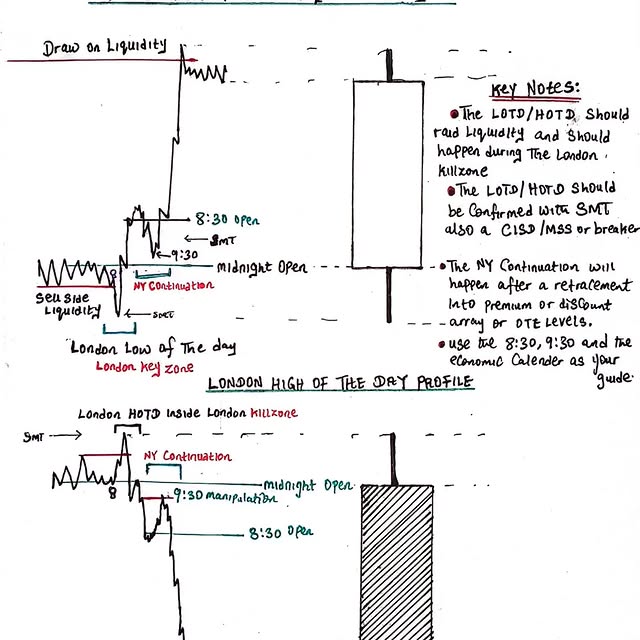 Draw on Liquidity
8:30 Open
SMT
9:30
midnight Open
NY Continuation
Sell side
Liquidity
SMT
London Low of The day
London Key zone
Key Notes:
The LOTD/HOTD Should
raid Liquidity and Should
happen during The London
Killzone
The LOTD/HOTD Should
be Confirmed with SMT
also a CISD/MSS or breaker
The NY Continuation will
happen after a retracement
Into premium or discount
array or OTE Levels.
use the 8:30, 9:30 and the
economic Calender as your
guide.
LONDON HIGH OF THE DAY PROFILE
London HOTD Inside London Killzone
SMT
NY Continuation
midnight Open
9:30 manipulation
8:30 Open